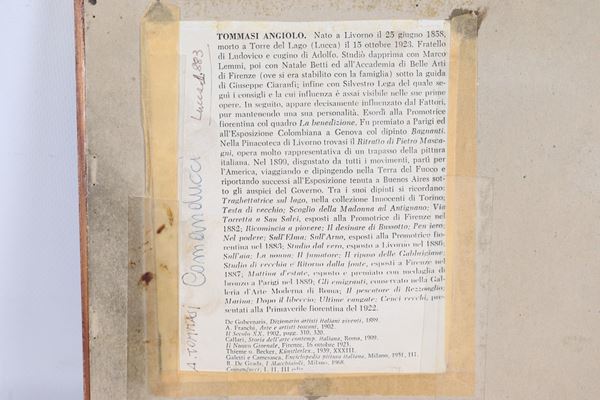 TOMMASI ANGIOLO. Nato a Livorno il 25 giugno 1858,
morto a Torre del Lago (Lucca) il 15 ottobre 1923. Fratello
di Ludovico e cugino di Adolfo. Studiò dapprima con Marco
Lemmi, poi con Natale Betti ed all'Accademia di Belle Arti
di Firenze (ove si era stabilito con la famiglia) sotto la guida
di Giuseppe Ciaranfi; infine con Silvestro Lega del quale se-
guì i consigli e la cui influenza è assai visibile nelle sue prime
opere. In seguito, appare decisamente influenzato dal Fattori,
pur mantenendo una sua personalità. Esordì alla Promotrice
fiorentina col quadro La benedizione. Fu premiato a Parigi ed
all'Esposizione Colombiana a Genova col dipinto Bagnanti.
Nella Pinacoteca di Livorno trovasi il Ritratto di Pietro Masca-
gni, opera molto rappresentativa di un trapasso della pittura
italiana. Nel 1899, disgustato da tutti i movimenti, partì per
l'America, viaggiando e dipingendo nella Terra del Fuoco e
riportando successi all'Esposizione tenuta a Buenos Aires sot-
to gli auspici del Governo. Tra i suoi dipinti si ricordano:
Traghettatrice sul lago, nella collezione Innocenti di Torino;
Testa di vecchio; Scoglio della Madonna ad Antignano; Via
Torretta a San Salvi, esposti alla Promotrice di Firenze nel
1882; Ricomincia a piovere; Il desinare di Bussotto; Pensiero;
Nel podere; Sull'Elma; Sull'Arno, esposti alla Promotrice fio-
rentina nel 1883; Studio dal vero, esposto a Livorno nel 1886;
Sull'aia; La nonna; Il fumatore; Il riposo delle Gabbrigiane;
Studio di vecchia e Ritorno dalla fonte, esposti a Firenze nel
1887; Mattina d'estate, esposto e premiato con medaglia di
bronzo a Parigi nel 1889; Gli emigranti, conservato nella Gal-
leria d'Arte Moderna di Roma; Il pescatore di Rezzonglio;
Marina; Dopo il libeccio; Ultime vangate; Cenci vecchi, pre-
sentati alla Primaverile fiorentina del 1922.
De Gubernatis, Dizionario artisti italiani viventi, 1889.
A. Franchi, Arte e artisti toscani, 1902.
Il Secolo XX, 1902, pagg. 310, 320.
Callari, Storia dell'arte contemp. italiana, Roma, 1909.
Il Nuovo Giornale, Firenze, 16 ottobre 1923.
Thieme u. Becker, Künstlerlex., 1939, XXXIII.
Galetti e Camesasca, Enciclopedia pittura italiana, Milano, 1951, III.
R. De Grada, I Macchiaioli, Milano, 1968.
Comanducci, I, II, III
A. TOMMASI Comanducci